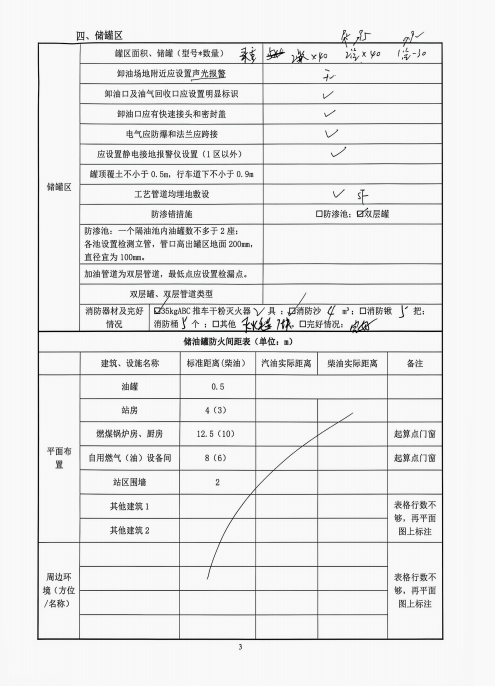 四、储罐区
罐区面积、储罐（型号*数量） x40 x 40
卸油场地附近应设置声光报警
卸油口及油气回收口应设置明显标识 ✓
卸油口应有快速接头和密封盖 ✓
电气应防爆和法兰应跨接 ✓
应设置静电接地报警仪设置（1区以外） ✓
罐顶覆土不小于 0.5m，行车道下不小于 0.9m
储罐区
工艺管道均埋地敷设 ✓
防渗错措施 □防渗池；☑双层罐
防渗池：一个隔油池内油罐数不多于 2 座；
各池设置检测立管，管口高出罐区地面 200mm，
直径宜为 100mm。
加油管道为双层管道，最低点应设置检漏点。
双层罐、双层管道类型
消防器材及完好情况 ☑35kgABC 推车干粉灭火器 具；☑消防沙 4 m³；□消防锹 5 把；
消防桶 5 个；□其他 □完好情况：
储油罐防火间距表（单位：m）
建筑、设施名称 标准距离(柴油) 汽油实际距离 柴油实际距离 备注
油罐 0.5
站房 4（3）
燃煤锅炉房、厨房 12.5（10） 起算点门窗
平面布置
自用燃气（油）设备间 8（6） 起算点门窗
站区围墙 2
其他建筑 1
其他建筑 2
表格行数不
够，再平面
图上标注
周边环
境（方位
/名称）
表格行数不
够，再平面
图上标注
3